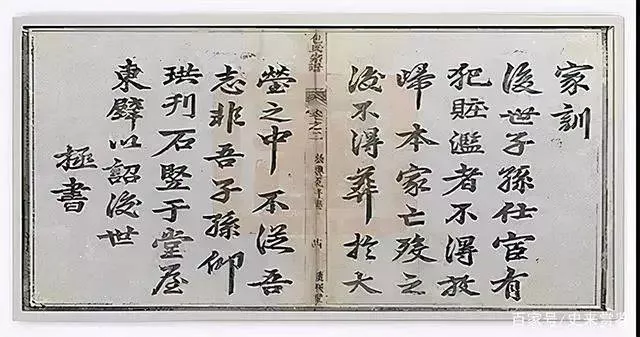 家訓
後世子孫仕宦有
犯賍濫者不得放
歸本家亡殁之
後不得葬於大
塋之中不從吾
志非吾子孫仰
珙刊石竪于堂屋
東壁以詔後世
極書
包氏宗譜
卷之二
百家号/史来赏